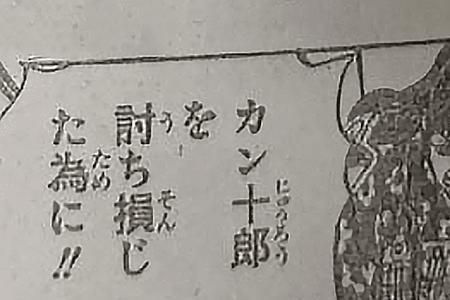 カン十郎
を
討ち損じ
た為に!!